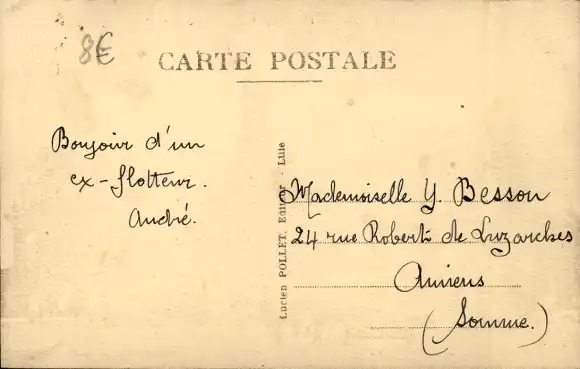 8€
CARTE POSTALE
Bonjoir d'un
ex-flotteur.
André.
Lucien POLLET, Editeur - Lille
Mademoiselle Y. Besson
24 rue Robert de Luzarches
Amiens
(Somme.)